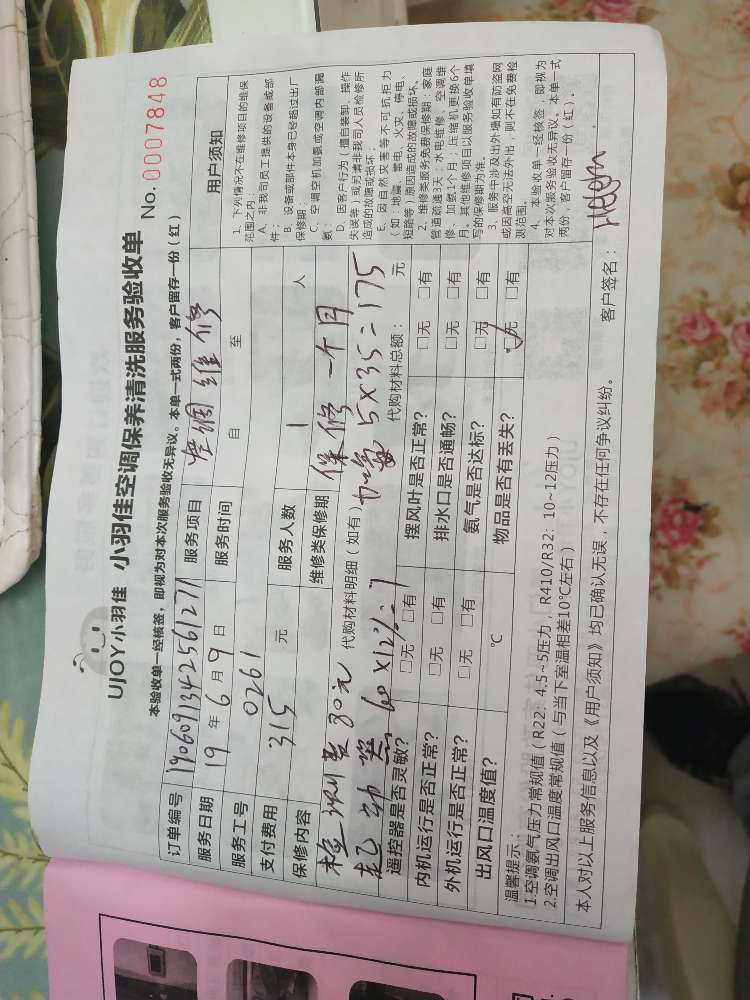 UJOY小羽佳 小羽佳空调保养清洗服务验收单 No. 0007848
本验收单一经核签，即视为对本次服务验收无异议。本单一式两份，客户留存一份（红）
订单编号 1906091342561271 服务项目 空调维修
服务日期 19 年 6 月 9 日 服务时间 自 至
服务工号 0261
支付费用 315 元 服务人数 1 人
保修内容 维修类保修期 保修一个月
检测费 80元 代购材料明细（如有） 代购材料总额： 元
5×35=175
遥控器是否灵敏？ □无 □有 摆风叶是否正常？ □无 □有
内机运行是否正常？ □无 □有 排水口是否通畅？ □无 □有
外机运行是否正常？ □无 □有 氨气是否达标？ □无 □有
出风口温度值？ ℃ 物品是否有丢失？ □无 □有
温馨提示：
1.空调氨气压力常规值（R22：4.5~5压力，R410/R32：10~12压力）
2.空调出风口温度常规值（与当下室温相差10℃左右）
本人对以上服务信息以及《用户须知》均已确认无误，不存在任何争议纠纷。 客户签名：
用户须知
1、下列情况不在维修项目的维保
范围之内。
A、非我司员工提供的设备或部
件；
B、设备或部件本身已经超过出厂
保修期；
C、空调空机加氨或空调内部漏
氨；
D、因客户行为（擅自装卸、操作
失误等）或另请非我司人员检修所
造成的故障或损坏；
E、因自然灾害等不可抗拒力
（如：地震、雷电、火灾、停电、
短路等）原因造成的故障或损坏。
2、维修类服务免费保修期：家庭
管道疏通3天；水电维修、空调维
修、加氨1个月；压缩机更换6个
月。其他维修项目以服务验收单填
写的保修期为准。
3、服务中涉及出外墙如有防盗网
或因高空无法外出，则不在免费检
测范围。
4、本验收单一经核签，即视为
对本次服务验收无异议。本单一式
两份，客户留存一份（红）。